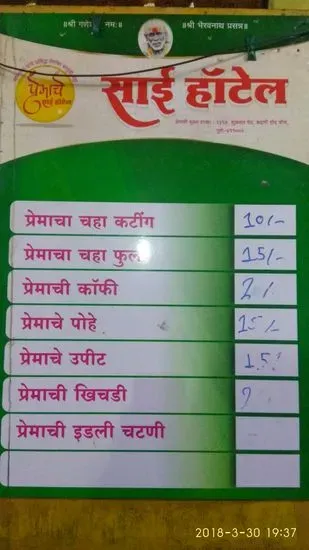 ॥श्री गणेशाय नमः॥ ॥श्री भैरवनाथ प्रसन्न॥
प्रेमाचे
साई हॉटेल
प्रेमाचा चहा कटींग 10/-
प्रेमाचा चहा फुल 15/-
प्रेमाची कॉफी
प्रेमाचे पोहे 15/-
प्रेमाचे उपीट 15/
प्रेमाची खिचडी
प्रेमाची इडली चटणी
2018-3-30 19:37